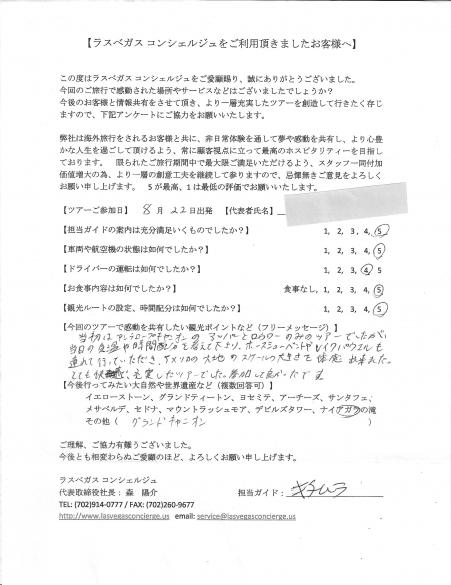 【ラスベガス コンシェルジュをご利用頂きましたお客様へ】
この度はラスベガス コンシェルジュをご愛顧賜り、誠にありがとうございました。
今回のご旅行で感動された場所やサービスなどはございましたでしょうか?
今後のお客様と情報共有をさせて頂き、より一層充実したツアーを創造して行きたく存じ
ますので、下記アンケートにご協力をお願いいたします。
弊社は海外旅行をされるお客様と共に、非日常体験を通して夢や感動を共有し、より心豊
かな人生を過ごして頂けるよう、常に顧客視点に立って最高のホスピタリティーを目指し
ております。 限られたご旅行期間中で最大限ご満足いただけるよう、スタッフ一同付加
価値増大の為、より一層の創意工夫を継続して参りますので、忌憚無きご意見をよろしく
お願い申し上げます。 5が最高、1は最低の評価でお願いいたします。
【ツアーご参加日】 8月 22日出発 【代表者氏名】
【担当ガイドの案内は充分満足いくものでしたか?】 1, 2, 3, 4, 5
【車両や航空機の状態は如何でしたか?】 1, 2, 3, 4, 5
【ドライバーの運転は如何でしたか?】 1, 2, 3, 4, 5
【お食事内容は如何でしたか?】 食事なし, 1, 2, 3, 4, 5
【観光ルートの設定、時間配分は如何でしたか?】 1, 2, 3, 4, 5
【今回のツアーで感動を共有したい観光ポイントなど(フリーメッセージ)】
当初はアンテロープキャニオンのアッパーとロウワーのみのツアーでしたが、
当日の気温や時間配分を考えて下さり、ホースシューベンドやレイクパウエルも
連れて行っていただき、アメリカの大地のスケールの大きさを体感出来ました。
とても快適、充実したツアーでした。参加して良かったです
【今後行ってみたい大自然や世界遺産など(複数回答可)】
イエローストーン、グランドティートン、ヨセミテ、アーチーズ、サンタフェ、
メサベルデ、セドナ、マウントラッシュモア、デビルズタワー、ナイアガラの滝
その他( グランドキャニオン )
ご理解、ご協力有難うございました。
今後とも相変わらぬご愛顧のほど、よろしくお願い申し上げます。
ラスベガス コンシェルジュ
代表取締役社長: 森 陽介 担当ガイド: キタムラ
TEL: (702)914-0777 / FAX: (702)260-9677
http://www.lasvegasconcierge.us email: service@lasvegasconcierge.us